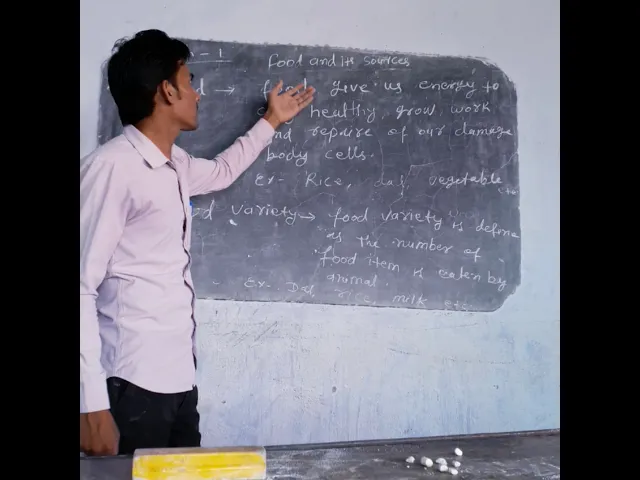 - 1 Food and its sources
d → food give us energy to
healthy, grow, work
and repaire of our damage
body cells.
Ex- Rice, dal, vegetable etc
od variety → food variety is define
as the number of
food item is eaten by
animal.
Ex- Dal, rice, milk etc.